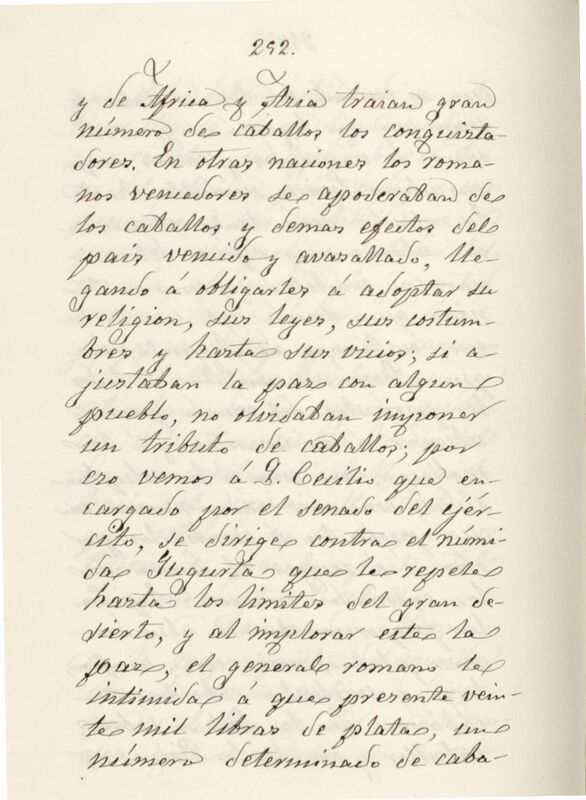 292.
y de Africa y Asia traian gran
número de caballos los conquista-
dores. En otras naciones los roma-
nos vencedores se apoderaban de
los caballos y demas efectos del
país vencido y avasallado, lle-
gando á obligarles á adoptar su
religion, sus leyes, sus costum-
bres y hasta sus vicios; si a-
justaban la paz con algun
pueblo, no olvidaban imponer
un tributo de caballos; por
eso vemos á Q. Cecilio que en-
cargado por el senado del ejér-
cito, se dirige contra el númi-
da Yugurta que le repele
hasta los límites del gran de-
sierto, y al implorar este la
paz, el general romano le
intimida á que presente vein-
te mil libras de plata, un
número determinado de caba-